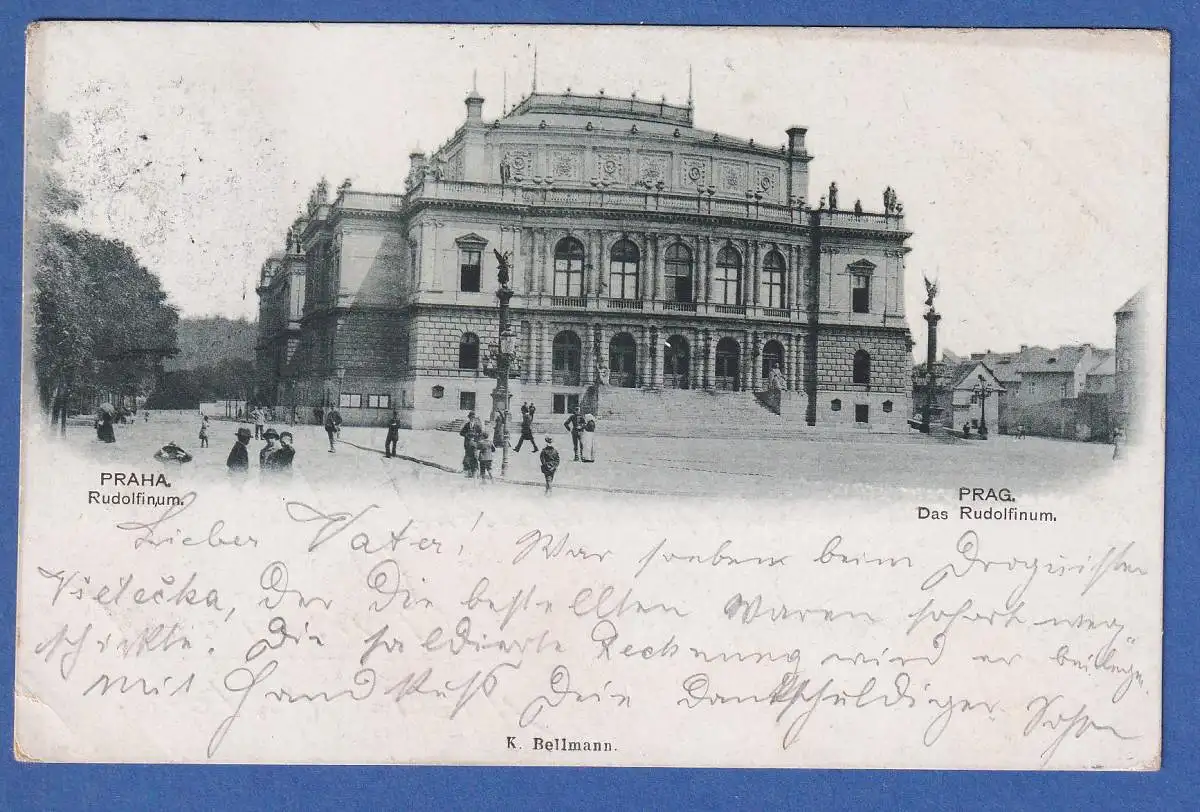 PRAHA.
Rudolfinum.
PRAG.
Das Rudolfinum.
Lieber Vater! War soeben beim Droguisten
Všetečka, der die bestellten Waren sofort weg-
schickte. Die saldierte Rechnung wird er beilegen.
Mit Handkuß Dein dankschuldiger Sohn
K. Bellmann.